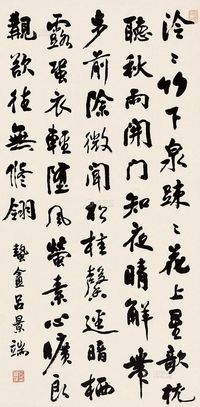 泠〻竹下泉疎〻花上星欹枕
聽秋雨開門知夜晴解帶
步前除微聞松桂馨迷暗栖
露蛩衣輕墮風螢素心曠良
覯欲往無脩翎
蟄盦呂景端